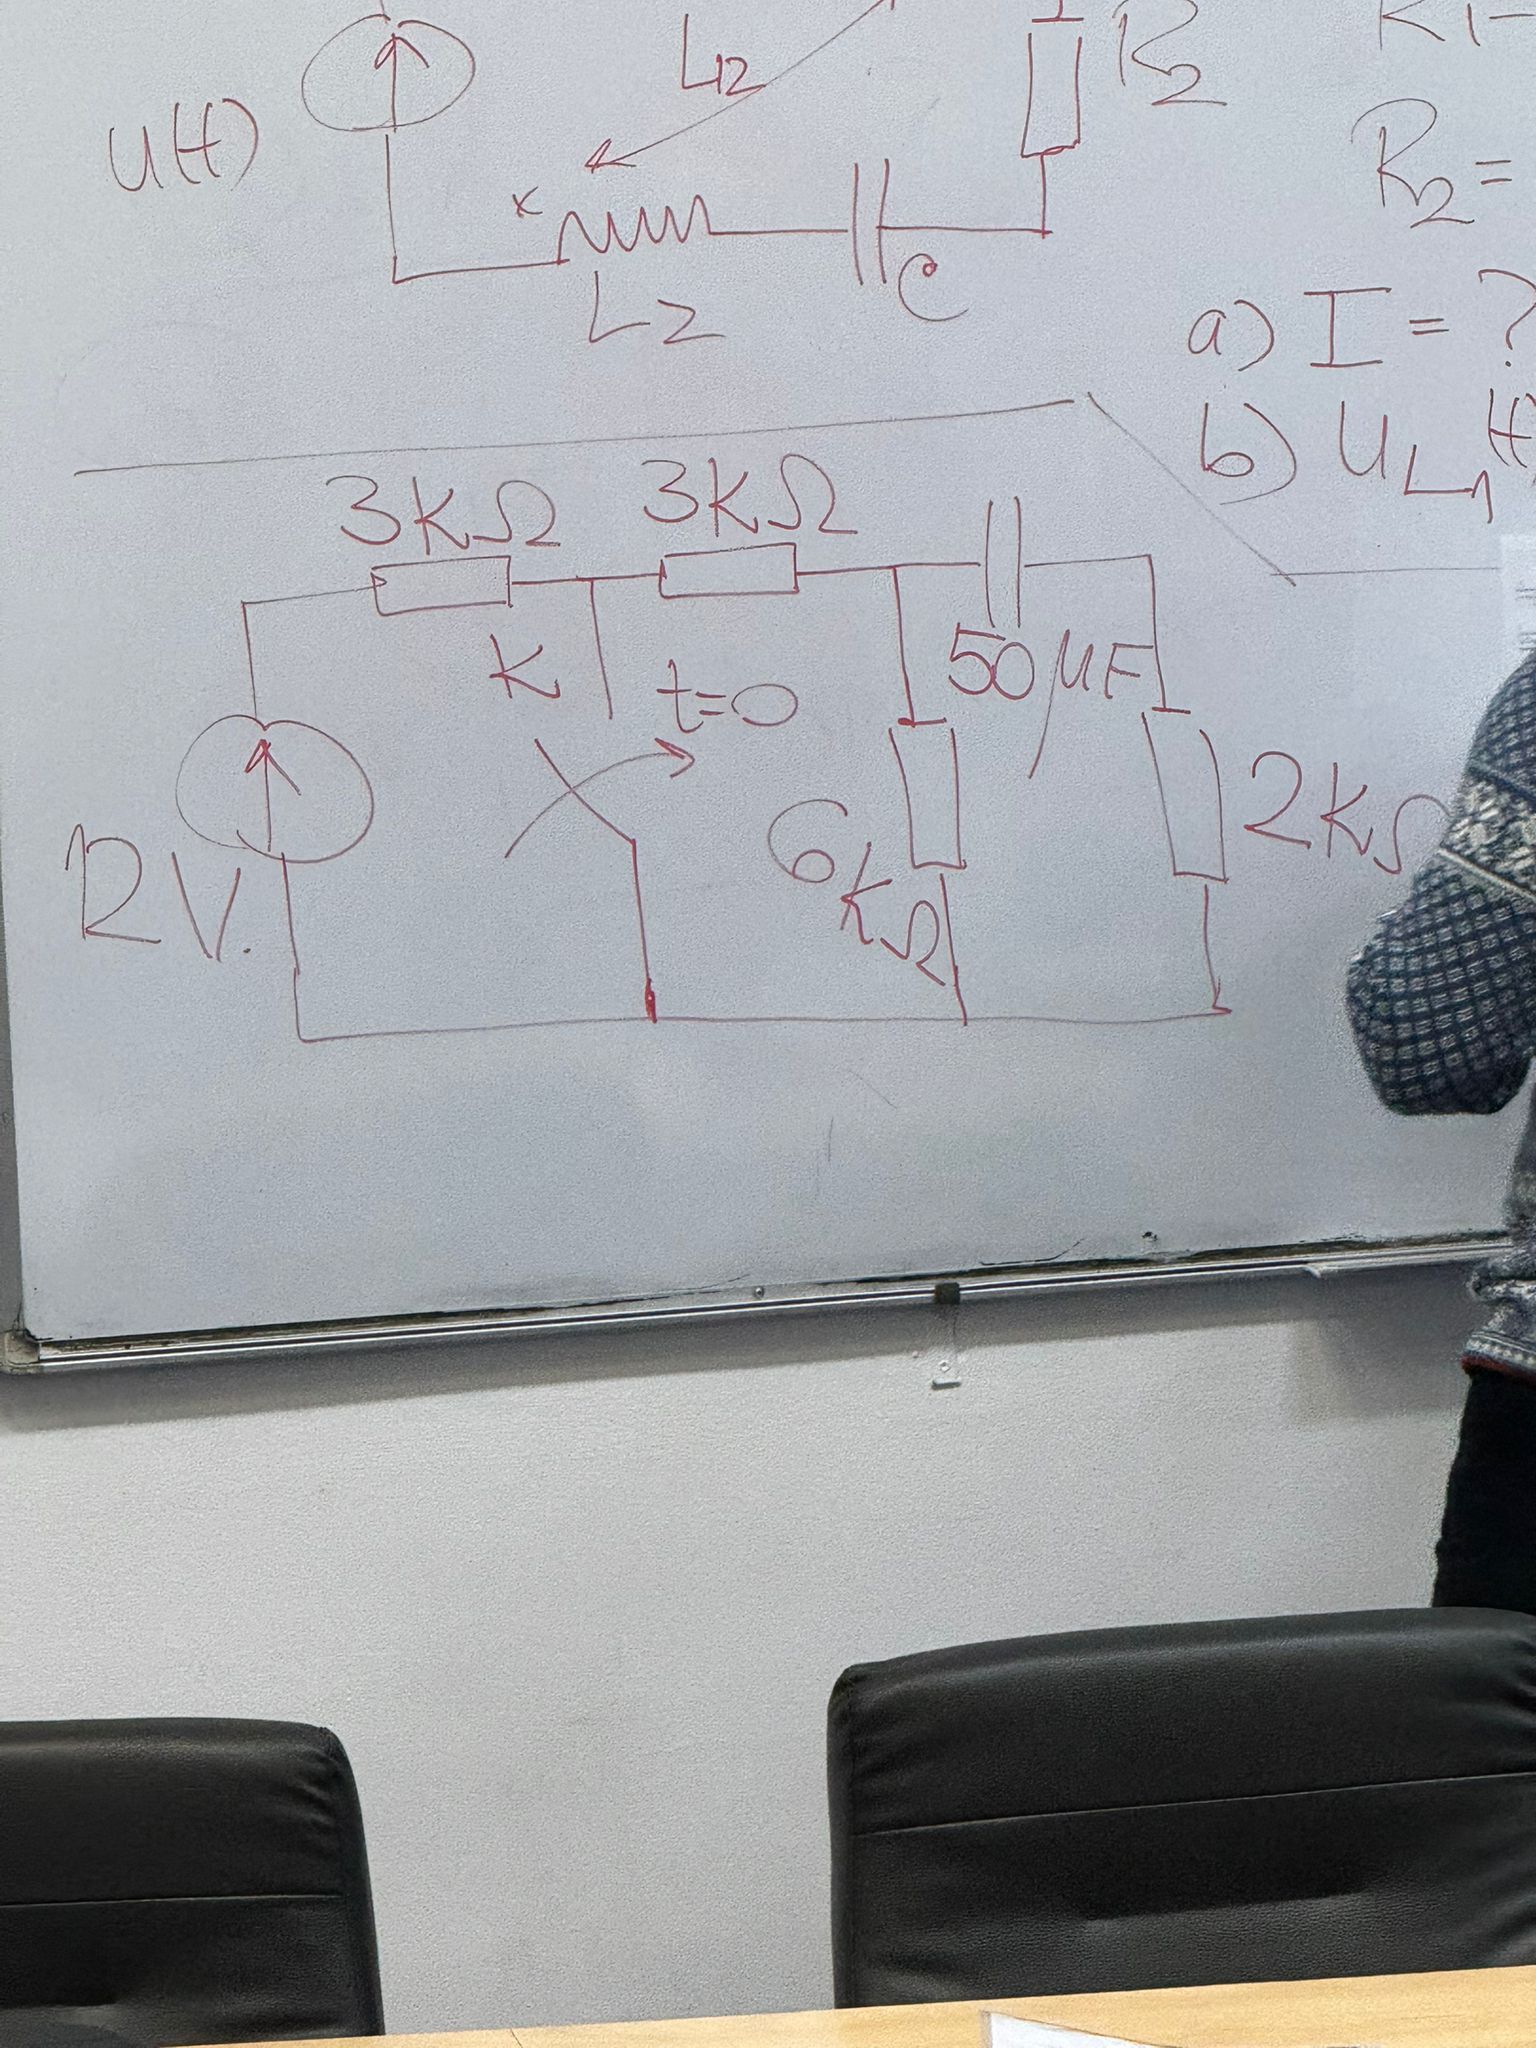 L12
R2
u(t)
R2=
L2
C
a) I = ?
b) uL1(t)
3kΩ
3kΩ
K
t=0
50µF
12V.
6kΩ
2kΩ